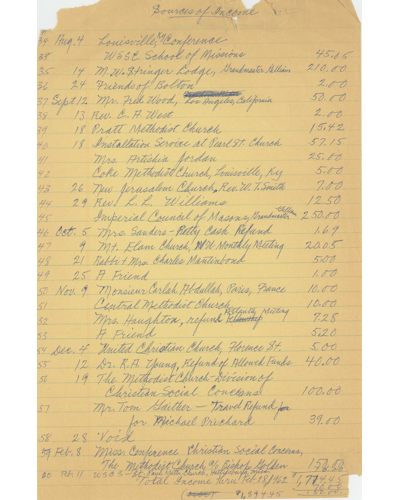 Sources of Income
34 Aug. 4 Louisville, Conference
38 WSCS School of Missions 45.05
35 14 M.W. Stringer Lodge, Grandmaster 210.00
36 24 Friends of Bolton 2.00
37 Sept 12 Mr. Fred Wood, Los Angeles, California 50.00
38 13 Rev. E. A. West 2.00
39 18 Pratt Methodist Church 15.42
40 18 Installation Service at Pearl St. Church 57.15
41 Mrs. Artishia Jordan 25.00
42 Coke Methodist Church, Louisville, Ky 5.00
43 26 New Jerusalem Church, Rev. W. T. Smith 7.00
44 29 Rev. L. L. Williams 12.50
45 Imperial Council of Masons, Grandmaster 250.00
46 Oct. 5 Mrs. Sanders - Petty Cash Refund 1.69
47 9 Mt. Elam Church, NW. Monthly Meeting 20.05
48 21 Rabbi & Mrs. Charles Mantinband 5.00
49 25 A Friend 1.00
50 Nov. 9 Monsieur Abdallah, Paris, France 10.00
51 Central Methodist Church 10.00
52 Mrs. Haughton, refund Atlanta Meeting 7.28
53 A Friend 5.20
54 Dec. 4 United Christian Church, Florence St. 5.00
55 12 Dr. R. A. Young, Refund of Allowed Funds 40.00
56 19 The Methodist Church - Division of
Christian Social Concerns 100.00
57 Mr. Tom - Travel Refund for
for Michael Prichard 39.00
58 28 Void
59 Feb. 8 Miss. Conference Christian Social Concerns,
The Methodist Church c/o Bishop Golden
60 Feb. 11 WSCS
Total Income thru Feb. 28/1962